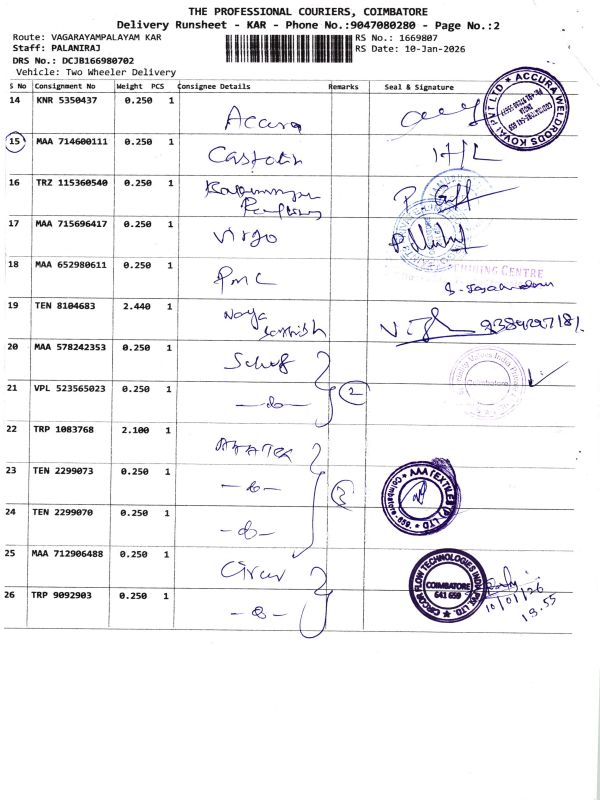 THE PROFESSIONAL COURIERS, COIMBATORE
Delivery Runsheet - KAR - Phone No.:9047080280 - Page No.:2
Route: VAGARAYAMPALAYAM KAR
RS No.: 1669807
Staff: PALANIRAJ
RS Date: 10-Jan-2026
DRS No.: DCJB166980702
Vehicle: Two Wheeler Delivery
S No Consignment No Weight PCS Consignee Details Remarks Seal & Signature
14 KNR 5350437 0.250 1 Accura
ACCURA WELDRODS KOVAI PVT LTD
15 MAA 714600111 0.250 1
16 TRZ 115360540 0.250 1
17 MAA 715696417 0.250 1 Virgo
18 MAA 652980611 0.250 1 PMC
CENTRE
19 TEN 8104683 2.440 1
20 MAA 578242353 0.250 1
Coimbatore
21 VPL 523565023 0.250 1 -do- 2
22 TRP 1083768 2.100 1
23 TEN 2299073 0.250 1 -do- 3
AAA TEXTILES (P) LTD
Coimbatore-659.
24 TEN 2299070 0.250 1 -do-
25 MAA 712906488 0.250 1 Circor
CIRCOR FLOW TECHNOLOGIES INDIA PVT. LTD.
COIMBATORE
641 659
26 TRP 9092903 0.250 1 -do-
10/01/26